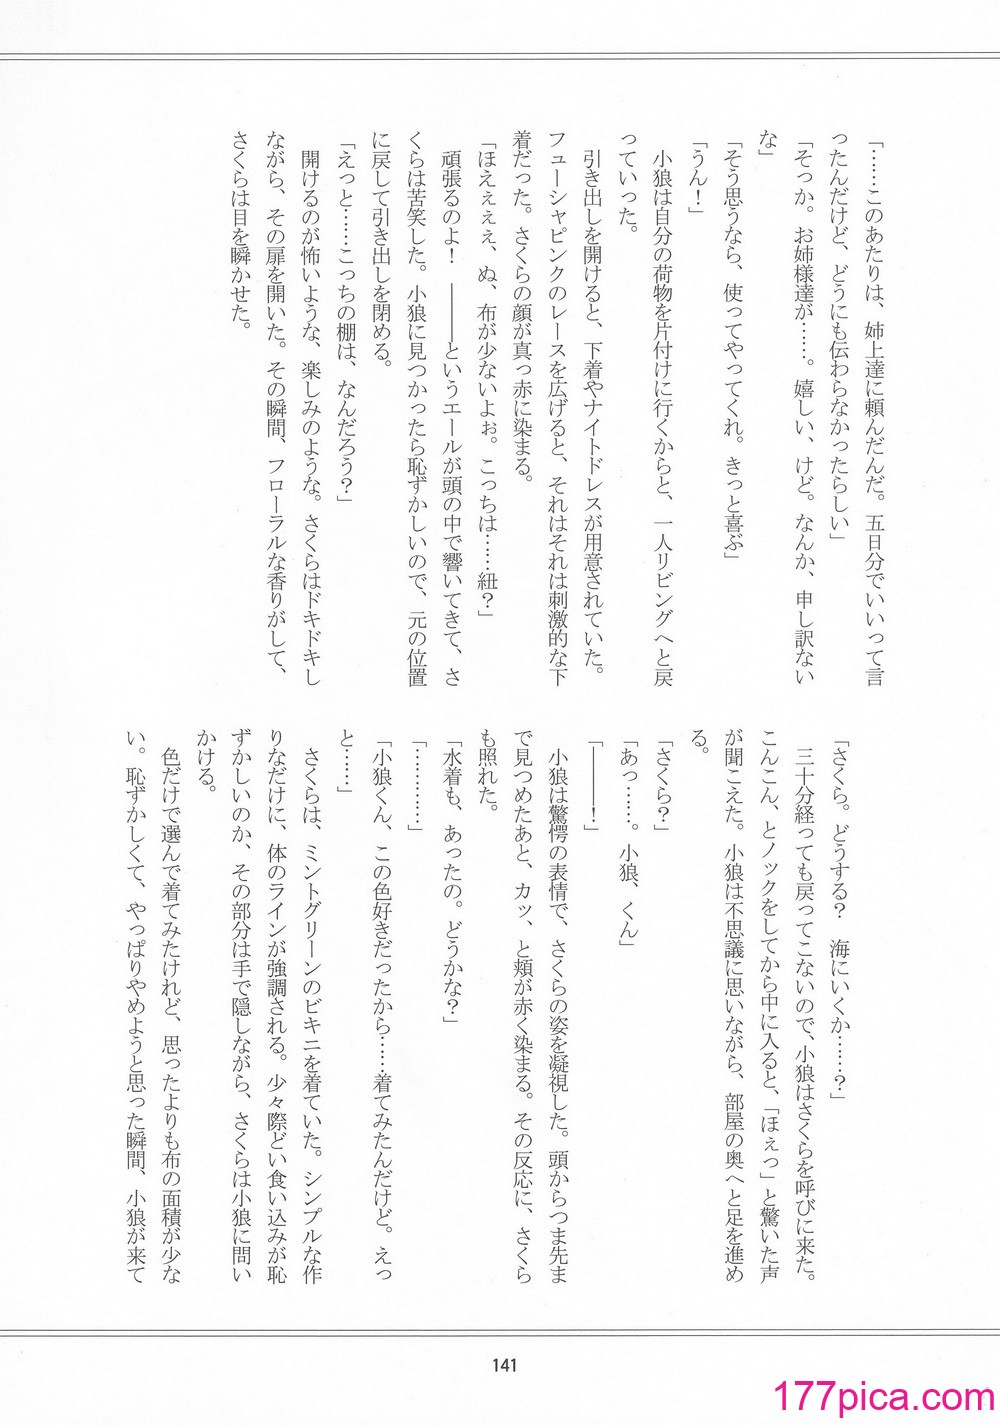 「……このあたりは、姉上達に頼んだんだ。五日分でいいって言
ったんだけど、どうにも伝わらなかったらしい」
「そっか。お姉様達が……。嬉しい、けど。なんか、申し訳ない
な」
「そう思うなら、使ってやってくれ。きっと喜ぶ」
「うん！」
　小狼は自分の荷物を片付けに行くからと、一人リビングへと戻
っていった。
　引き出しを開けると、下着やナイトドレスが用意されていた。
フューシャピンクのレースを広げると、それはそれは刺激的な下
着だった。さくらの顔が真っ赤に染まる。
「ほえぇぇぇ、ぬ、布が少ないよぉ。こっちは……紐？」
　頑張るのよ！　――というエールが頭の中で響いてきて、さ
くらは苦笑した。小狼に見つかったら恥ずかしいので、元の位置
に戻して引き出しを閉める。
「えっと……こっちの棚は、なんだろう？」
　開けるのが怖いような、楽しみのような。さくらはドキドキし
ながら、その扉を開いた。その瞬間、フローラルな香りがして、
さくらは目を瞬かせた。
「さくら。どうする？　海にいくか……？」
　三十分経っても戻ってこないので、小狼はさくらを呼びに来た。
こんこん、とノックをしてから中に入ると、「ほぇっ」と驚いた声
が聞こえた。小狼は不思議に思いながら、部屋の奥へと足を進め
る。
「さくら？」
「あっ……。小狼、くん」
「――！」
　小狼は驚愕の表情で、さくらの姿を凝視した。頭からつま先ま
で見つめたあと、カッ、と頬が赤く染まる。その反応に、さくら
も照れた。
「水着も、あったの。どうかな？」
「…………」
「小狼くん、この色好きだったから……着てみたんだけど。えっ
と……」
　さくらは、ミントグリーンのビキニを着ていた。シンプルな作
りなだけに、体のラインが強調される。少々際どい食い込みが恥
ずかしいのか、その部分は手で隠しながら、さくらは小狼に問い
かける。
　色だけで選んで着てみたけれど、思ったよりも布の面積が少な
い。恥ずかしくて、やっぱりやめようと思った瞬間、小狼が来て
141
177pica.com